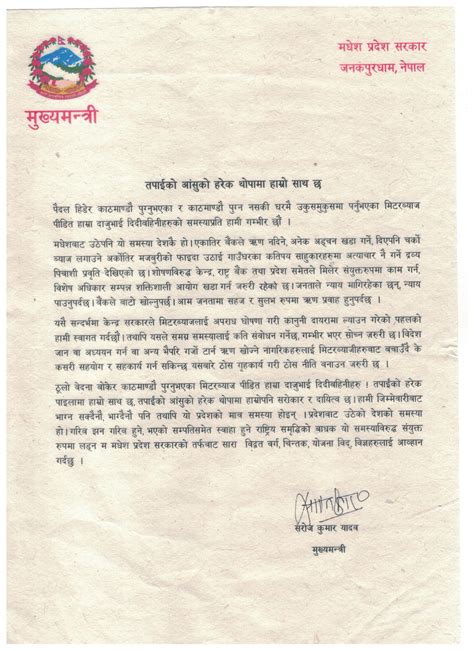 मधेश प्रदेश सरकार
जनकपुरधाम, नेपाल
मुख्यमन्त्री
तपाईको आंसुको हरेक थोपामा हाम्रो साथ छ
पैदल हिडेर काठमाण्डौ पुग्नुभएका र काठमाण्डौ पुग्न नसकी घरमै उकुसमुकुसमा पर्नुभएका मिटरब्याज
पीडित हाम्रा दाजुभाई दिदीबहिनीहरुको समस्याप्रति हामी गम्भीर छौं ।
मधेशबाट उठेपनि यो समस्या देशकै हो। एकातिर बैंकले ऋण नदिने, अनेक अड्चन खडा गर्ने, दिएपनि चर्को
ब्याज लगाउने अर्कोतिर मजबुरीको फाइदा उठाई गाउँघरका कतिपय साहुकारहरुमा अत्याचार नै गर्ने द्रव्य
पिचाशी प्रवृति देखिएको छ। शोषणविरुद्ध केन्द्र, राष्ट्र बैंक तथा प्रदेश समेतले मिलेर संयुक्तरुपमा काम गर्न,
विशेष अधिकार सम्पन्न शक्तिशाली आयोग खडा गर्न जरुरी रहेको छ। जनताले न्याय मागिरहेका छन्, न्याय
पाउनुपर्दछ। बैंकले बाटो खोल्नुपर्छ। आम जनतामा सहज र सुलभ रुपमा ऋण प्रवाह हुनुपर्दछ ।
यसै सन्दर्भमा केन्द्र सरकारले मिटरब्याजलाई अपराध घोषणा गरी कानूनी दायरामा ल्याउन गरेको पहलको
हामी स्वागत गर्दछौं। तथापि यसले समग्र समस्यालाई कति संवोधन गर्नेछ, गम्भीर भएर सोच्न जरुरी छ। विदेश
जान वा अध्ययन गर्न वा अन्य भैपरि गर्जो टार्न ऋण खोज्ने नागरिकहरुलाई मिटरब्याजीहरुबाट बचाउँदै के
कसरी सहयोग र सहकार्य गर्न सकिन्छ यसबारे ठोस गृहकार्य गरी ठोस नीति बनाउन जरुरी छ ।
ठूलो वेदना बोकेर काठमाण्डौ पुग्नुभएका मिटरब्याज पीडित हाम्रा दाजुभाई दिदीबहिनीहरु । तपाईको हरेक
पाइलामा हाम्रो साथ छ, तपाईको आंसुको हरेक थोपामा हाम्रोपनि सरोकार र दायित्व छ। हामी जिम्मेवारीबाट
भाग्न सक्दैनौं, भाग्दैनौं पनि तथापि यो प्रदेशको मात्र समस्या होइन् । प्रदेशबाट उठेको देशको समस्या
हो। गरिव झन गरिव हुने, भएको सम्पतिसमेत स्वाहा हुने राष्ट्रिय समृद्धिको बाधक यो समस्याविरुद्ध संयुक्त
रुपमा लड्न म मधेश प्रदेश सरकारको तर्फबाट सारा विद्वत वर्ग, चिन्तक, योजना विद्, विज्ञहरुलाई आव्हान
गर्दछु ।
सरोज कुमार यादव
मुख्यमन्त्री